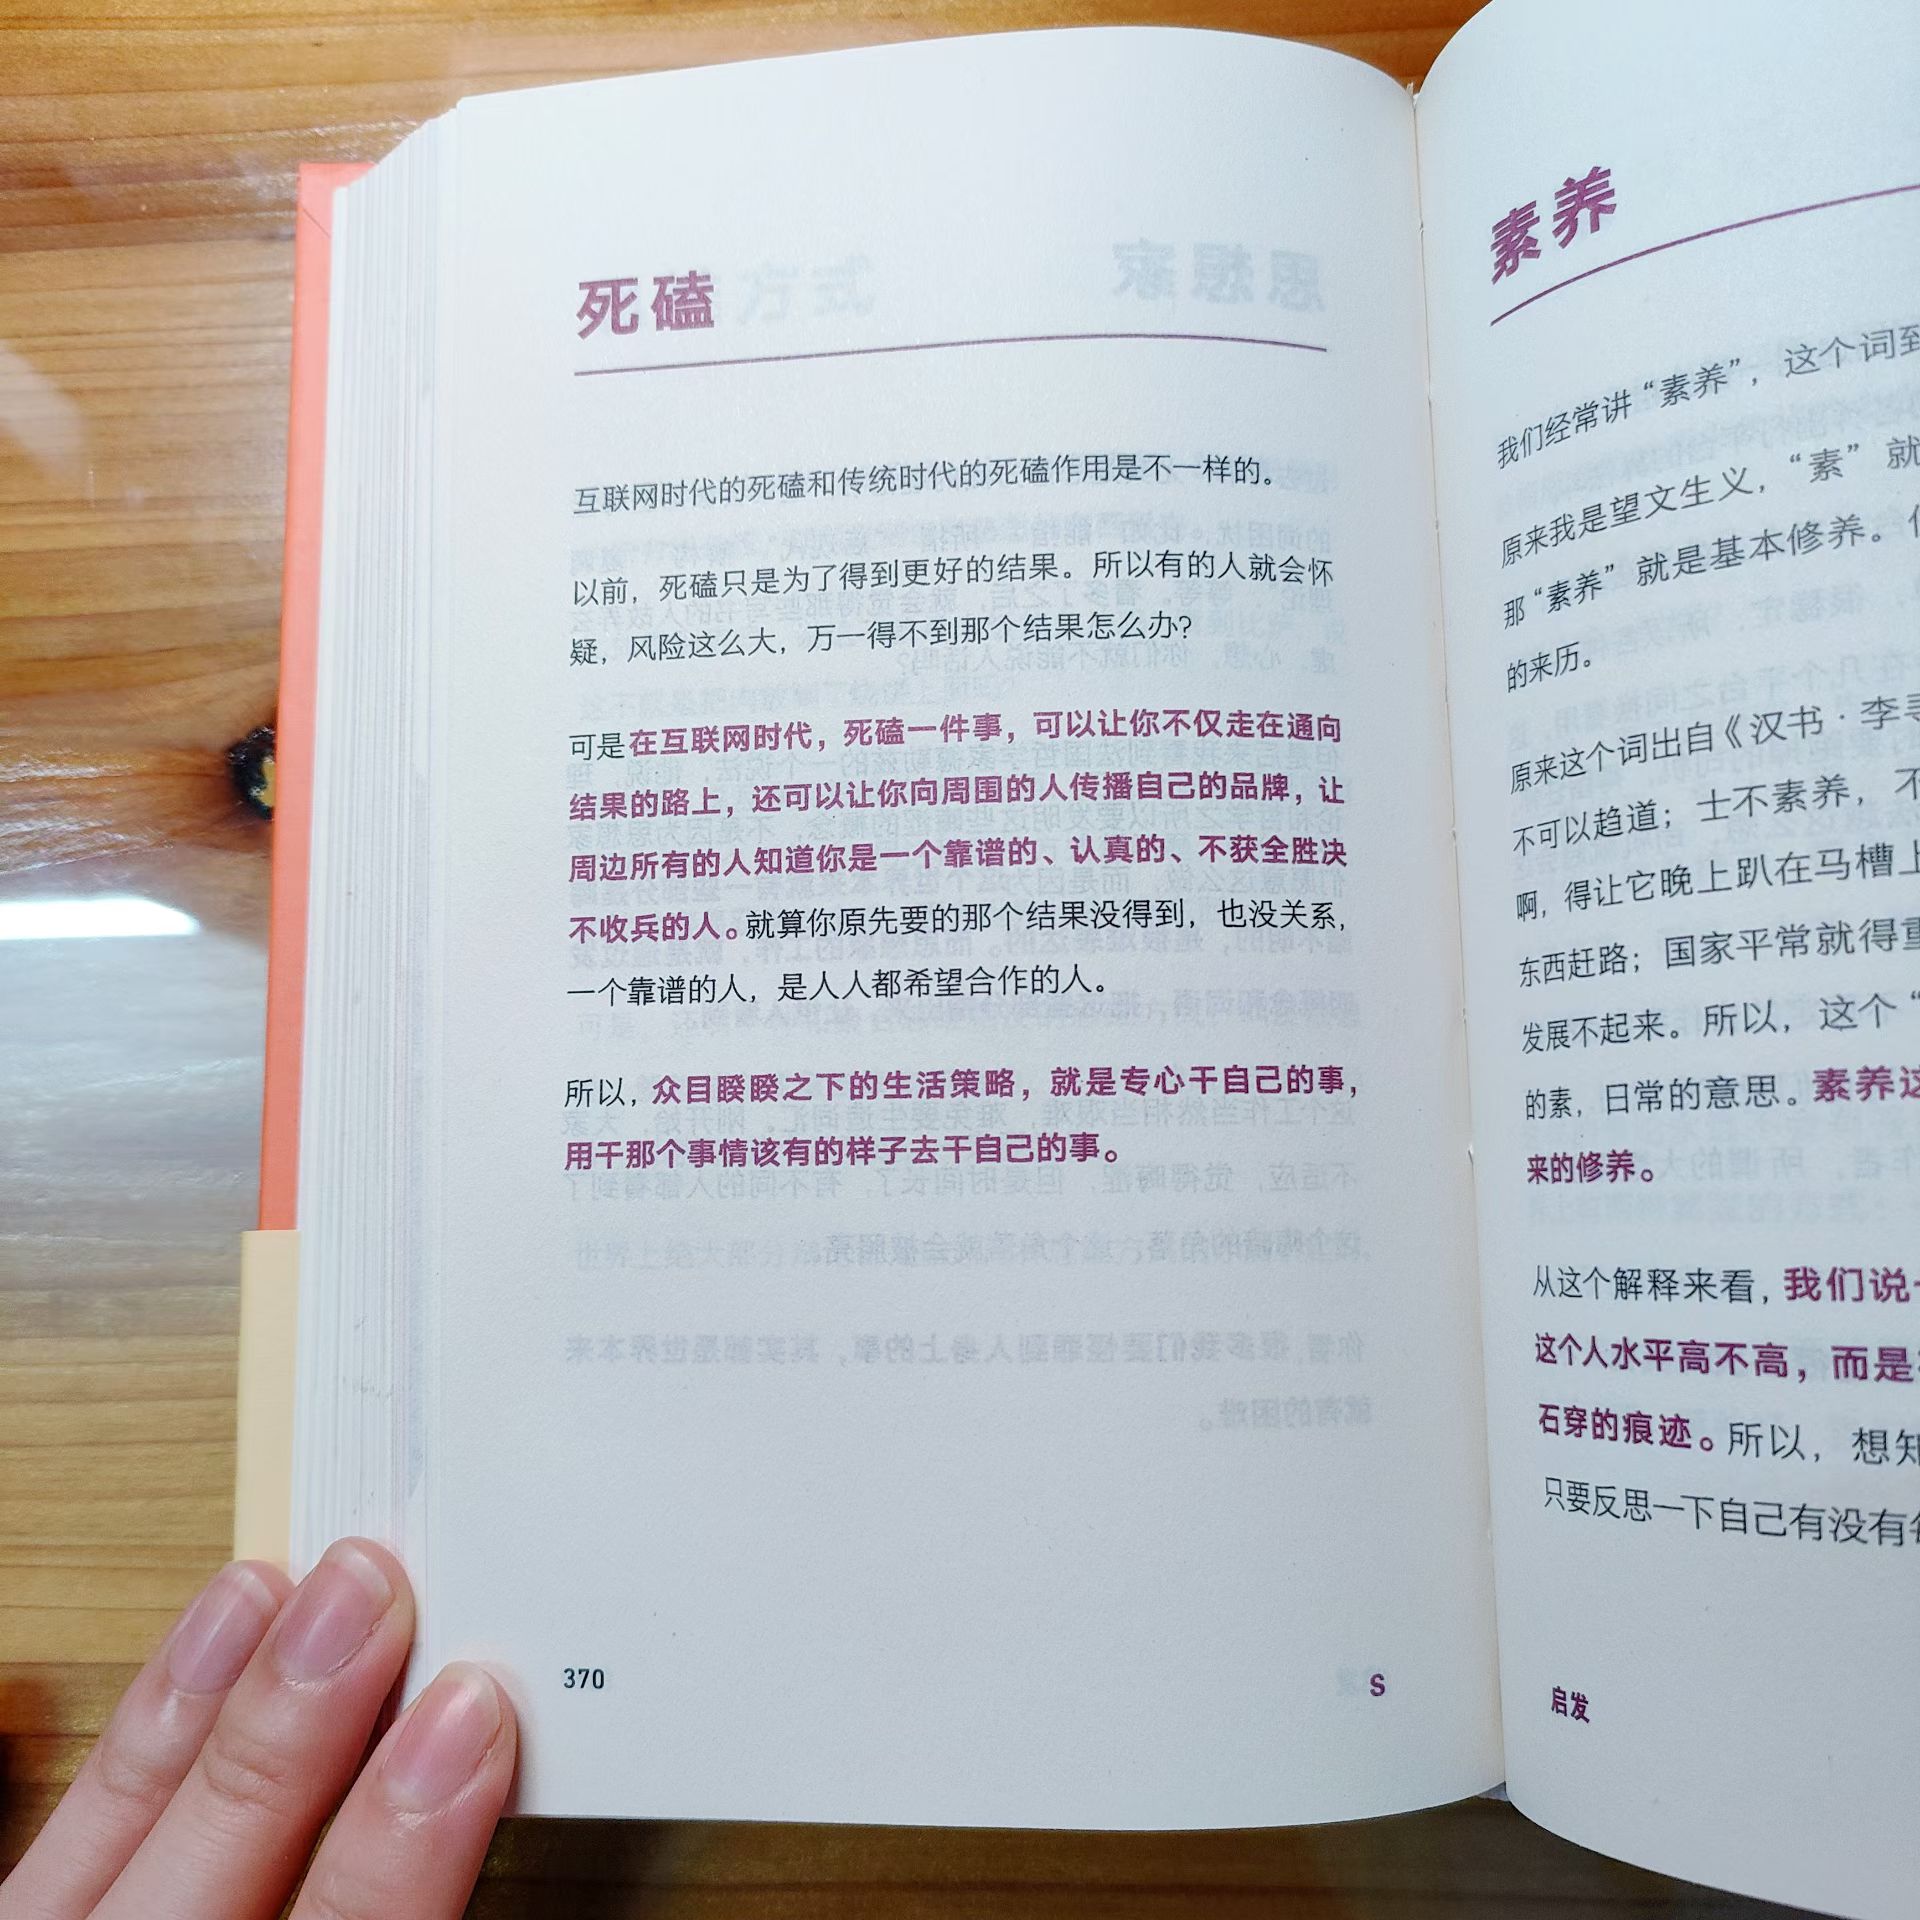 死磕
互联网时代的死磕和传统时代的死磕作用是不一样的。
以前，死磕只是为了得到更好的结果。所以有的人就会怀
疑，风险这么大，万一得不到那个结果怎么办？
可是在互联网时代，死磕一件事，可以让你不仅走在通向
结果的路上，还可以让你向周围的人传播自己的品牌，让
周边所有的人知道你是一个靠谱的、认真的、不获全胜决
不收兵的人。就算你原先要的那个结果没得到，也没关系，
一个靠谱的人，是人人都希望合作的人。
所以，众目睽睽之下的生活策略，就是专心干自己的事，
用干那个事情该有的样子去干自己的事。
370
S
素养
我们经常讲“素养”，这个词到
原来我是望文生义，“素”就
那“素养”就是基本修养。
的来历。
原来这个词出自《汉书·李寻
不可以趋道；士不素养，不
啊，得让它晚上趴在马槽上
东西赶路；国家平常就得重
发展不起来。所以，这个“
的素，日常的意思。素养这
来的修养。
从这个解释来看，我们说一
这个人水平高不高，而是
石穿的痕迹。所以，想知
只要反思一下自己有没有每
启发